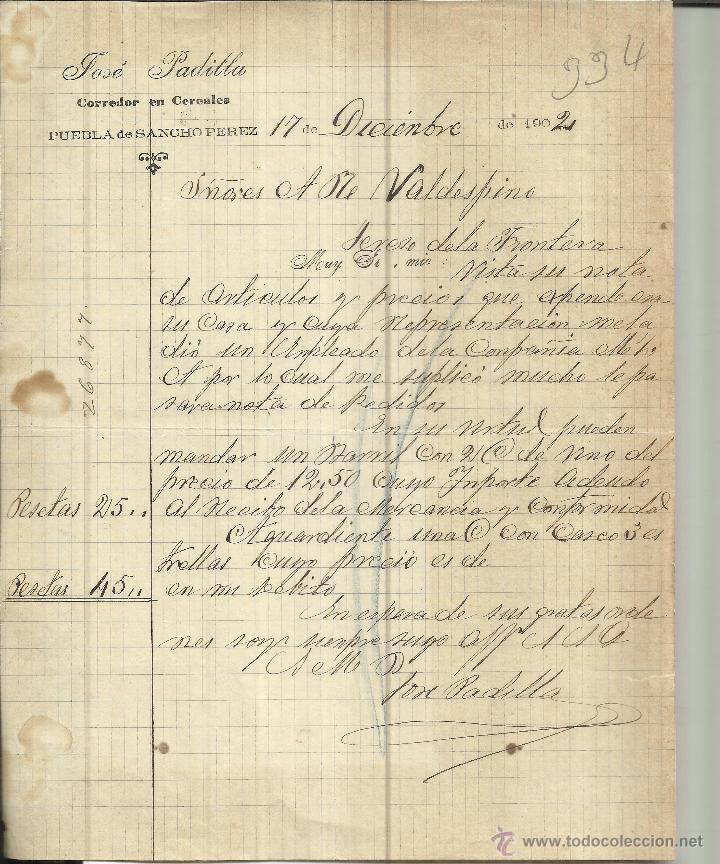 José Padilla
Corredor en Cereales
PUEBLA de SANCHO PEREZ 17 de Diciembre de 1902
334
Sñores A R de Valdespino
Jerez de la Frontera
Muy Sr. mio: Vista su nota
de artículos y precios que expende esa
su Casa y cuya Representacion me ha
dió un Enpleado de la Conpañia
A por lo cual me suplicó mucho le pa
sara nota de Pedidos
En su virtud pueden
mandar un Barril con 2 @ de vino del
precio de 12,50 cuyo Inporte Adeudo
Pesetas 25,, al Recibo de la Mercancia y Conformidad
Aguardiente una @ con Casco 3 es
trellas cuyo precio es de
Pesetas 45,, en mi debito
En espera de sus gratas orde
nes soy sienpre suyo aff S S S
Q B S M
José Padilla
26877
www.todocoleccion.net